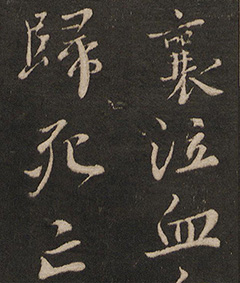 襄泣血
歸死亡